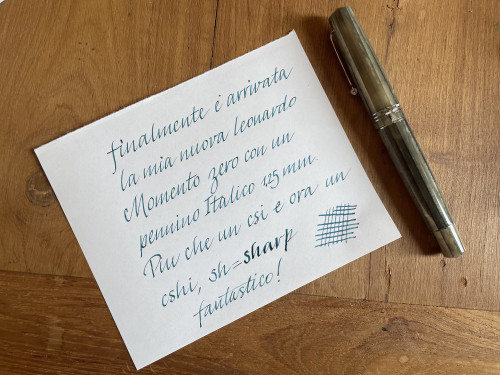 finalmente è arrivata
la mia nuova leonardo
Momento zero con un
pennino Italico 1.25 mm.
Piu che un csi e ora un
cshi, sh=sharp
fantastico!